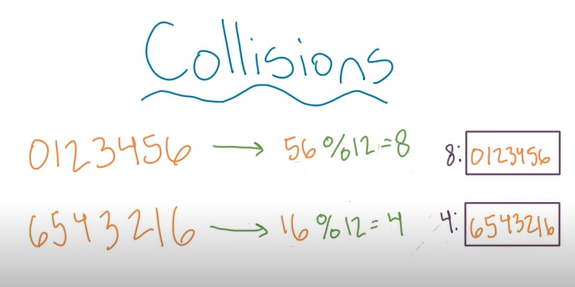 Collisions
0123456 → 56 %12=8 8: 0123456
6543216 → 16 %12=4 4: 6543216